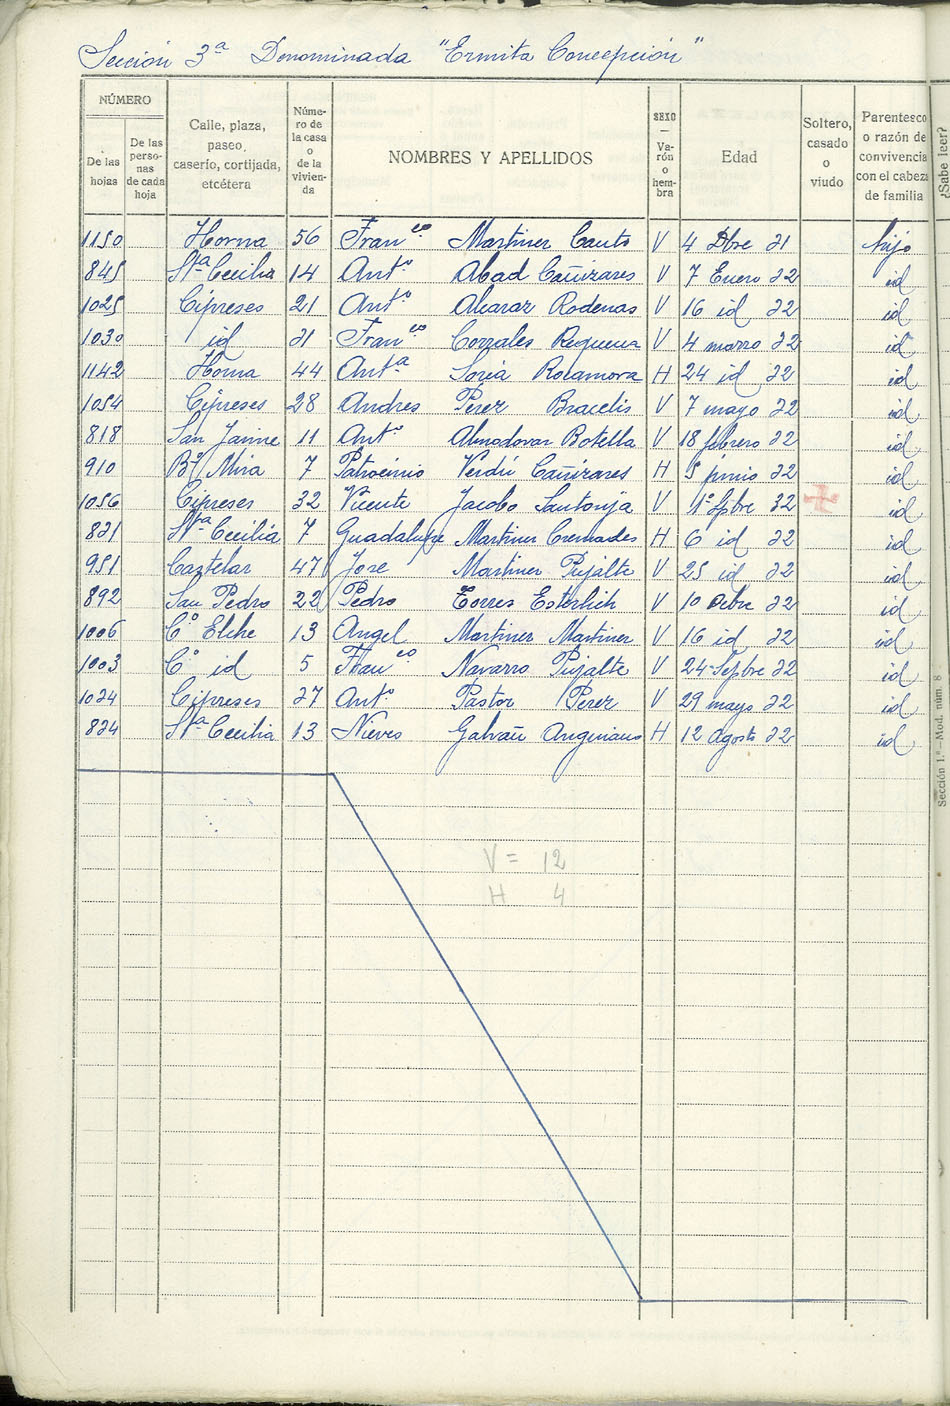 Sección 3ª Denominada "Ermita Concepción"
NÚMERO
De las hojas
De las perso-nas de cada hoja
Calle, plaza, paseo, caserío, cortijada, etcétera
Núme-ro de la casa o de la vivien-da
NOMBRES Y APELLIDOS
SEXO — Va-rón o hem-bra
Edad
Soltero, casado o viudo
Parentesco o razón de convivencia con el cabeza de familia
¿Sabe leer?
1150 Horna 56 Franco Martinez Cauto V 4 Dbre 21 hijo
845 Sta Cecilia 14 Anto Abad Cañizares V 7 Enero 22 id
1025 Cipreses 21 Anto Alcaraz Rodenas V 16 id 22 id
1030 id 21 Franco Corzales Requena V 4 marzo 22 id
1142 Horna 44 Anta Soria Rocamora H 24 id 22 id
1054 Cipreses 28 Andres Perez Bracelis V 7 mayo 22 id
818 San Jaime 11 Anto Almodovar Botella V 18 febrero 22 id
910 Bº Mira 7 Patrocinio Verdú Cañizares H 5 junio 22 id
1056 Cipreses 32 Vicente Jacobo Santonja V 1º Spbre 22 id
821 Sta Cecilia 7 Guadalupe Martinez Cremades H 6 id 22 id
951 Castelar 47 Jose Martinez Pujalte V 25 id 22 id
892 San Pedro 22 Pedro Torres Esterlich V 10 Ocbre 22 id
1006 Cº Elche 13 Angel Martinez Martinez V 16 id 22 id
1003 Cº id 5 Franco Navarro Pujalte V 24 Sepbre 22 id
1024 Cipreses 27 Anto Pastor Perez V 29 mayo 22 id
824 Sta Cecilia 13 Nieves Galvañ Anguiano H 12 Agosto 22 id
V = 12
H 4
Sección 1.ª—Mod. núm. 8